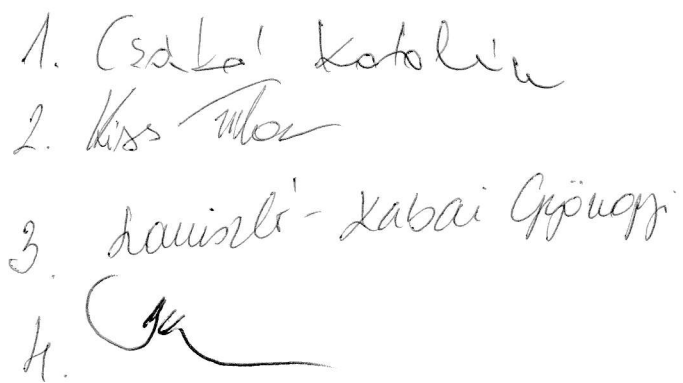 1. Csákái Katalin
2. Kiss Tibor
3. Laniszli - Kabai Gyöngyi
4.